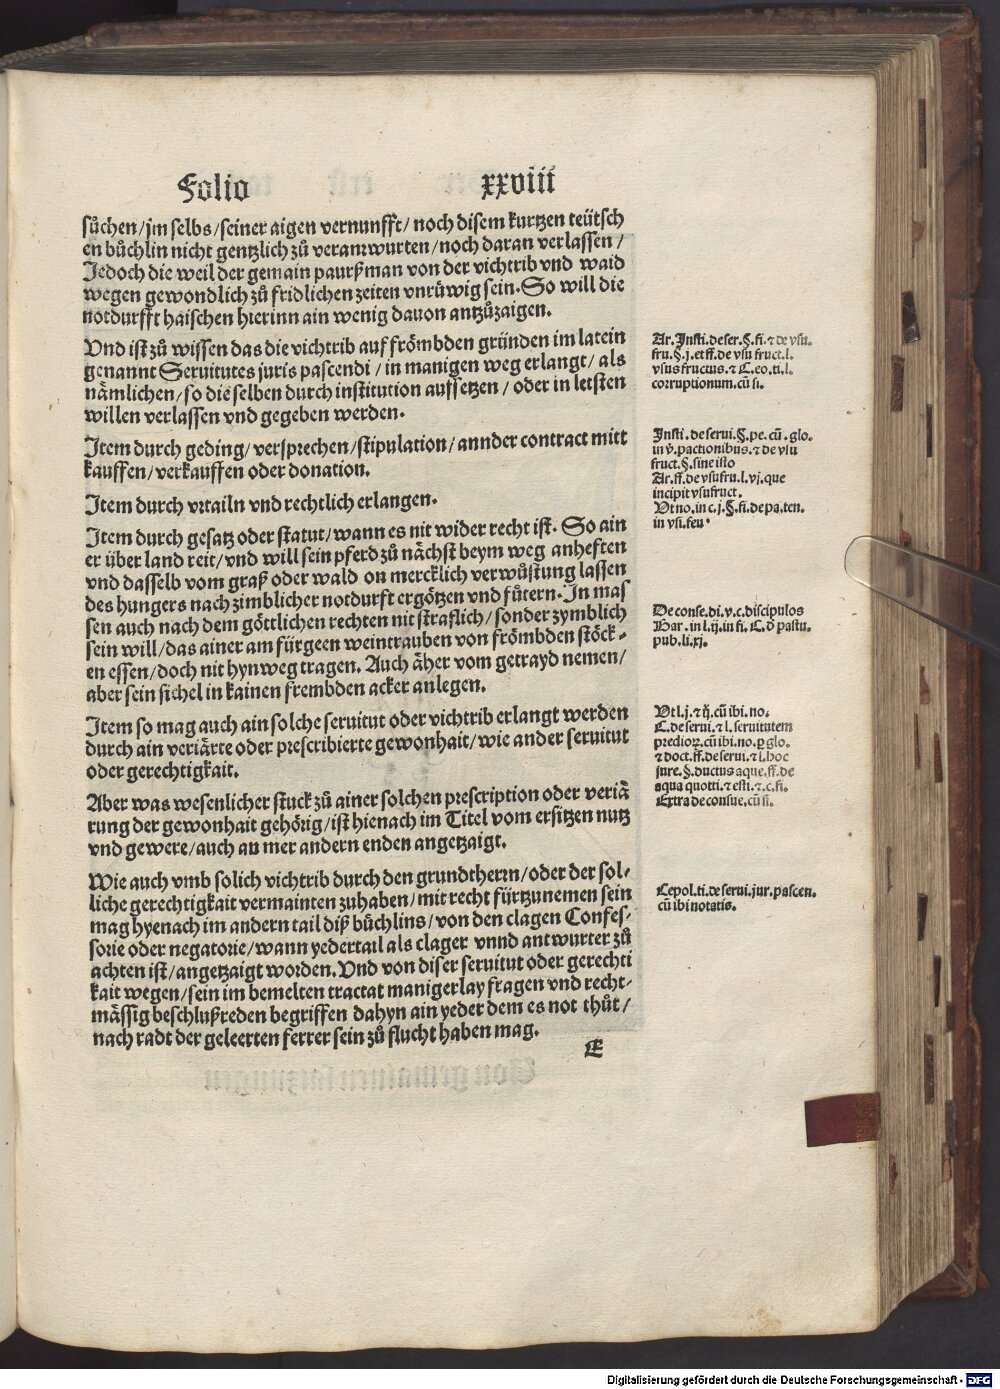 Folio xxviii
sůchen/jm selbs/seiner aigen vernunfft/noch disem kurtzen teütsch
en bůchlin nicht gentzlich zů verantwurten/noch daran verlassen/
Jedoch die weil der gemain paurßman von der vichtrib vnd waid
wegen gewondlich zů fridlichen zeiten vnrüwig sein. So will die
notdurfft haischen hierinn ain wenig dauon antzůzaigen.
Vnd ist zů wissen das die vichtrib auf frömbden gründen im latein
genannt Seruitutes juris pascendi/in manigen weg erlangt/als
nämlichen/so die selben durch institution auffsetzen/oder in letsten
willen verlassen vnd gegeben werden.
Item durch geding/versprechen/stipulation/annder contract mitt
kauffen/verkauffen oder donation.
Item durch vrtailn vnd rechtlich erlangen.
Item durch gesatz oder statut/wann es nit wider recht ist. So ain
er über land reit/vnd will sein pferd zů nächst beym weg anheften
vnd dasselb vom graß oder wald on mercklich verwůstung lassen
des hungers nach zimblicher notdurft ergötzen vnd fůtern. In mas
sen auch nach dem göttlichen rechten nit straflich/sonder zymblich
sein will/das ainer am fürgeen weintrauben von frömbden stöck-
en essen/doch nit hynweg tragen. Auch äher vom getrayd nemen/
aber sein sichel in kainen frembden acker anlegen.
Item so mag auch ain solche seruitut oder vichtrib erlangt werden
durch ain veriärte oder prescribierte gewonhait/wie ander seruitut
oder gerechtigkait.
Aber was wesenlicher stuck zů ainer solchen prescription oder veriä
rung der gewonhait gehörig/ist hienach im Titel vom ersitzen nutz
vnd gewere/auch an mer andern enden angetzaigt.
Wie auch vmb solich vichtrib durch den grundtherrn/oder der sol-
liche gerechtigkait vermainten zuhaben/mit recht fürtzunemen sein
mag hyenach im andern tail diß bůchlins/von den clagen Confes-
sorie oder negatorie/wann yedertail als clager vnnd antwurter zů
achten ist/angetzaigt worden. Vnd von diser seruitut oder gerechti
kait wegen/sein im bemelten tractat manigerlay fragen vnd recht-
mässig beschlußreden begriffen dahyn ain yeder dem es not thůt/
nach radt der geleerten ferrer sein zů flucht haben mag.
E
Ar. Insti. de ser. §. fi. ⁊ de vsu.
fru. §. j. et ff. de vsu fruct. l.
vsus fructus. ⁊ C. eo. ti. l.
corruptionum. cū si.
Insti. de serui. §. pe. cū. glo.
in v̓. pactionibus. ⁊ de vsu
fruct. §. sine isto
Ar. ff. de vsufru. l. vj. que
incipit vsufruct.
Vt no. in c. j. §. fi. de pa. ten.
in vsi. feu.
De conse. di. v. c. discipulos
Bar. in l. ij. in fi. C. d̓ pastu.
pub. li. xj.
Vt l. j. ⁊ ij. cū ibi. no.
C. de serui. ⁊ l. seruitutem
predioꝝ. cū ibi. no. ꝑ glo.
⁊ doct. ff. de serui. ⁊ l. hoc
jure. §. ductus aque. ff. de
aqua quotti. ⁊ esti. ⁊ c. fi.
Extra de consue. cū si.
Cepol. ti. de serui. jur. pascen.
cū ibi notatis.
Digitalisierung gefördert durch die Deutsche Forschungsgemeinschaft - DFG